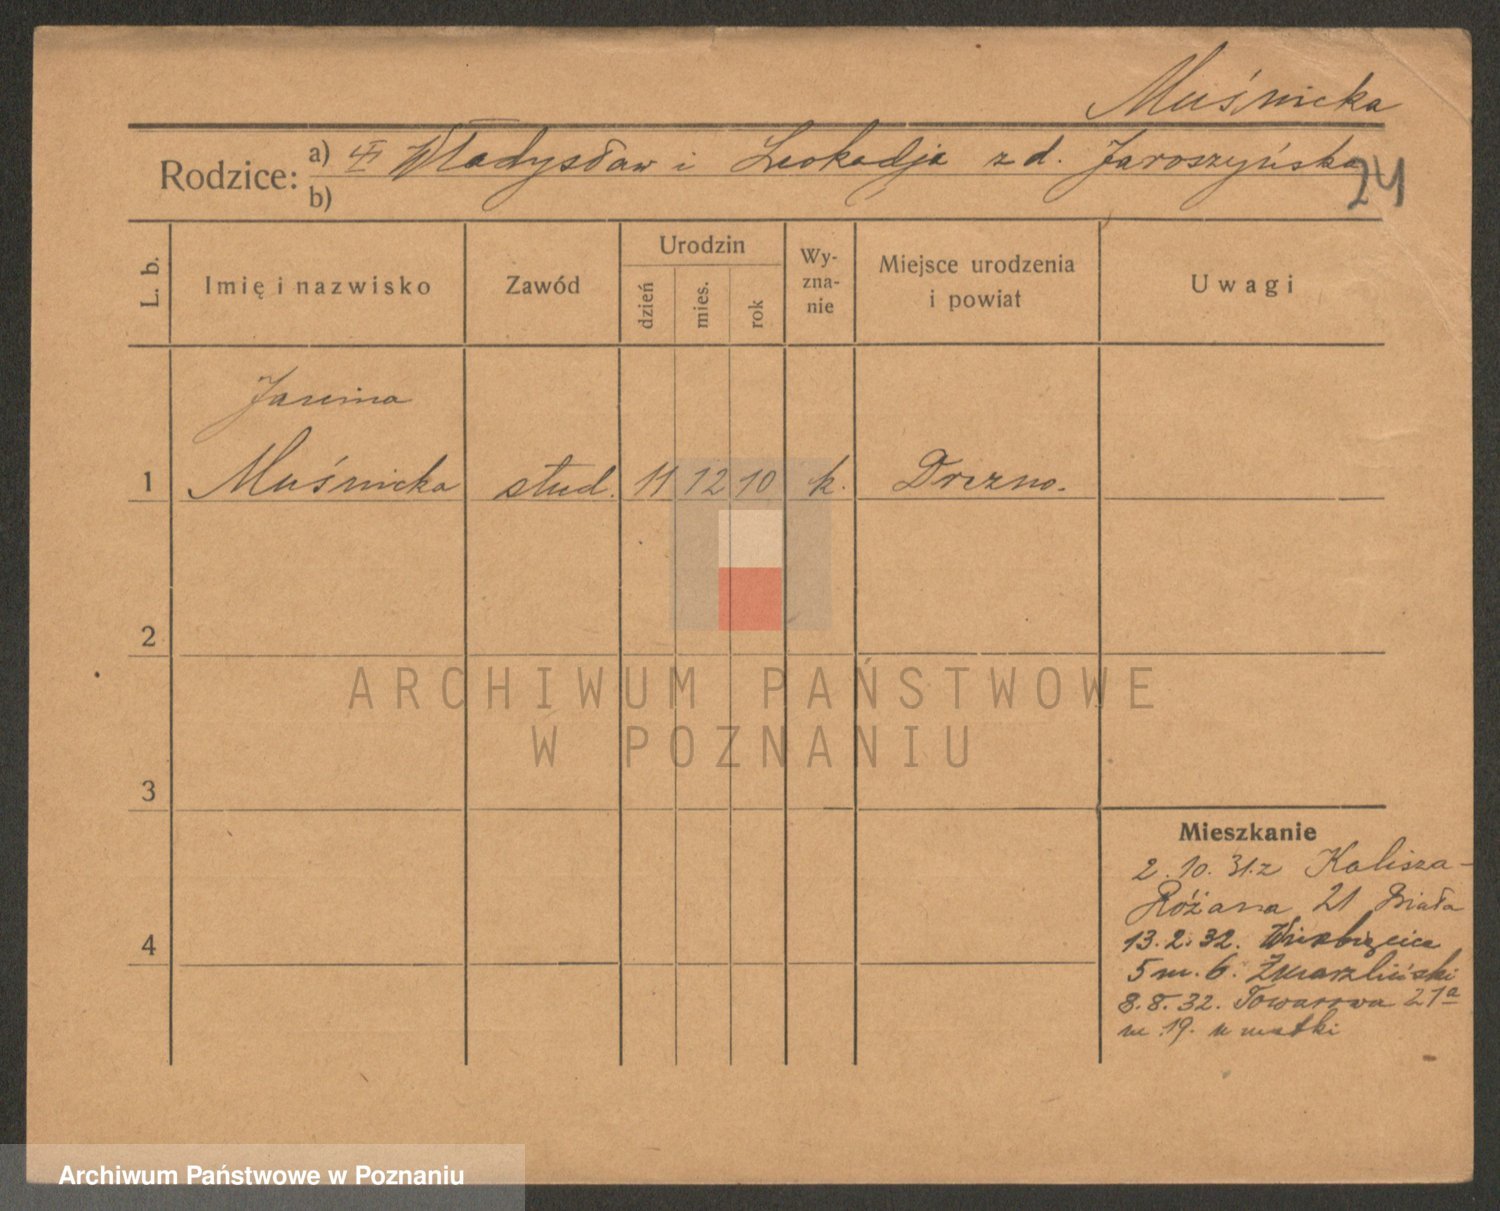 Muśnicka
Rodzice: a) Władysław i Leokadja z d. Jaroszyńska
b)
24
L. b.
Imię i nazwisko
Zawód
Urodzin
dzień
mies.
rok
Wy-
zna-
nie
Miejsce urodzenia
i powiat
Uwagi
Janina
1 Muśnicka stud. 11 12 10 k. Drezno.
2
3
4
Mieszkanie
2.10.31. z Kalisza -
Różana 21 Biała
13.2.32. Wierzbięcice
5 m. 6.
8.8.32. Towarowa 21a
m. 19. u matki
ARCHIWUM PAŃSTWOWE
W POZNANIU
Archiwum Państwowe w Poznaniu